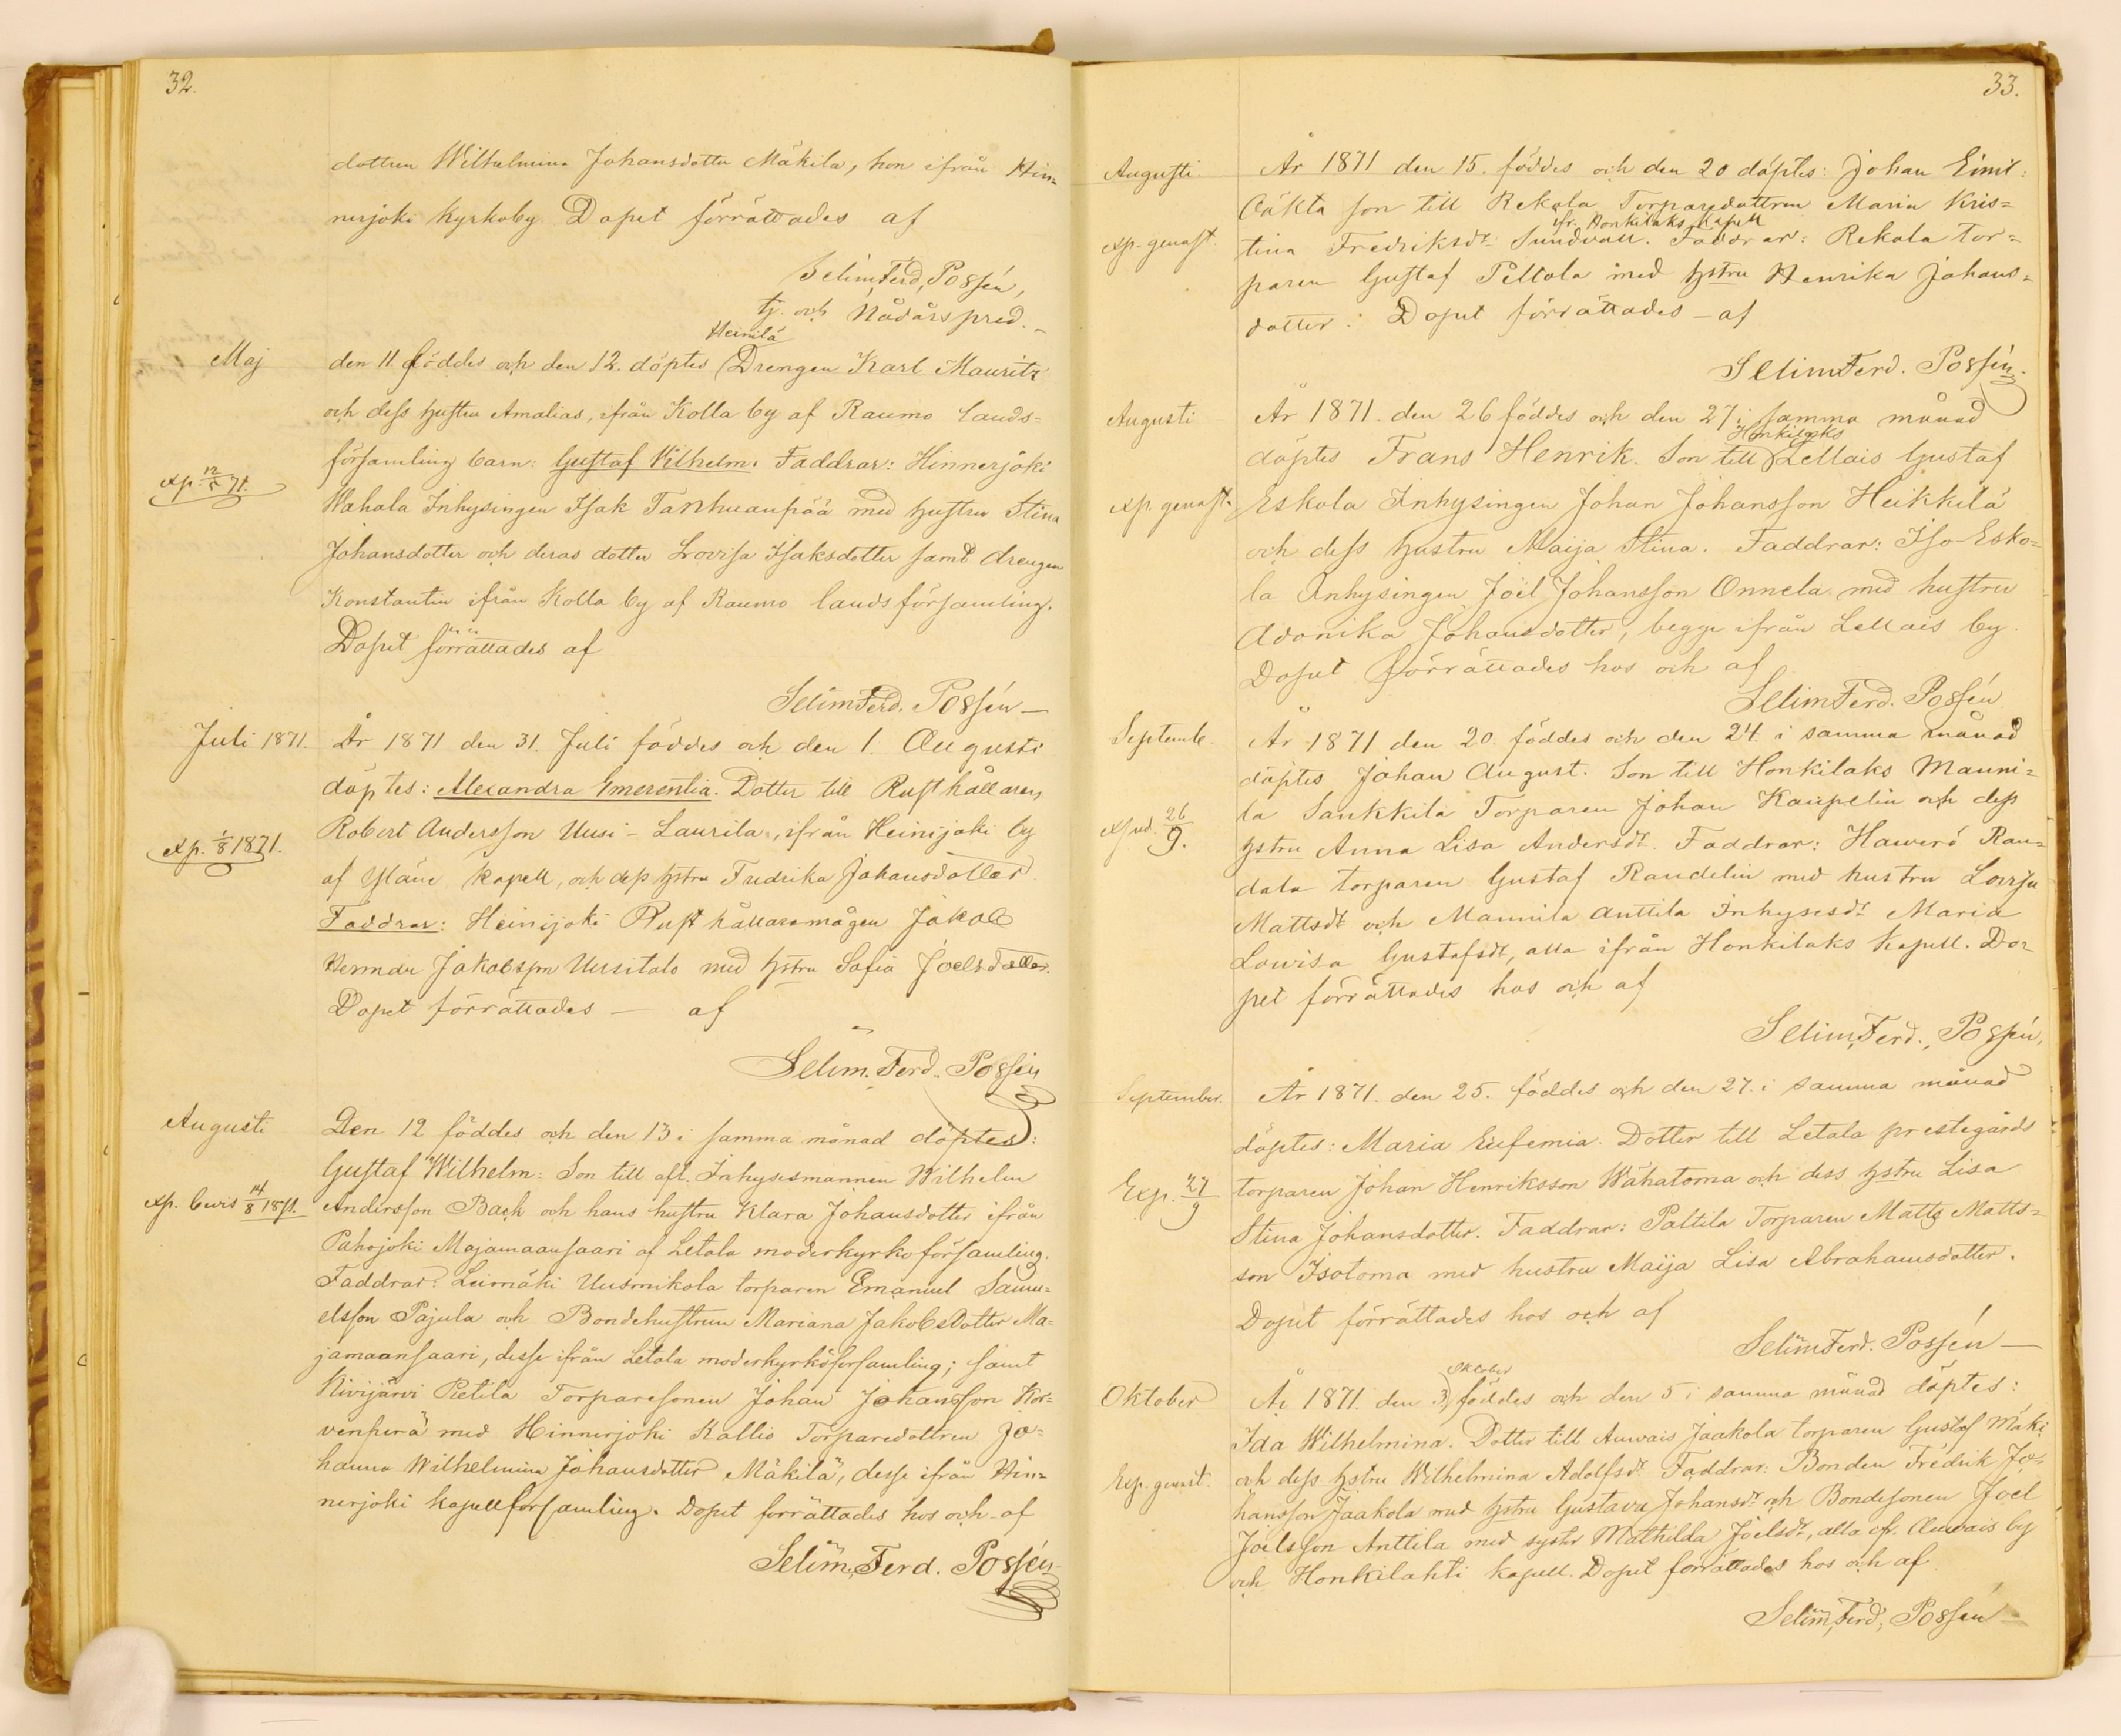 32.
dottren Wilhelmina Johansdotter Mäkilä, hon ifrån Hin-
nerjoki Kyrkoby. Dopet förrättades af
Selim Ferd. Possén,
tj. och Nådårspred.
Heinilä
Maj den 11 föddes och den 12. döptes Drengen Karl Mauritz
och dess hustru Amalias, ifrån Kolla by af Raumo lands-
församling barn: Gustaf Vilhelm. Faddrar: Hinnerjoki
exp. 12/5 71. Wahala Inhysingen Isak Tanhuanpää med hustru Stina
Johansdotter och deras dotter Lovisa Isaksdotter samt drengen
Konstantin ifrån Kolla by af Raumo landsförsamling.
Dopet förrättades af
Selim Ferd. Possén
Juli 1871. År 1871 den 31. Juli föddes och den 1. Augusti
döptes: Alexandra Emerentia. Dotter till Rusthållaren
Robert Andersson Uusi-Laurila, ifrån Heinijoki by
exp. 1/8 1871.
af Yläne kapell, och dess hstru Fredrika Johansdotter.
Faddrar: Heinijoki Rusthållaremågen Jakob
Herman Jakobsson Uusitalo med hstru Sofia Joelsdotter.
Dopet förrättades — af
Selim. Ferd. Possén
Augusti Den 12 föddes och den 13 i samma månad döptes:
Gustaf Wilhelm: Son till afl. Inhysesmannen Wilhelm
exp. bevis 14/8 1871. Andersson Back och hans hustru Klara Johansdotter ifrån
Pahojoki Majamaansaari af Letala moderkyrkoförsamling.
Faddrar: Leimäki Uusmikola torparen Emanuel Samu-
elsson Pajula och Bondehustrun Mariana Jakobsdotter Ma-
jamaansaari, desse ifrån Letala moderkyrkoförsamling; samt
Kivijärvi Pietila Torparesonen Johan Johansson Kor-
venperä med Hinnerjoki Kallio Torparedottren Jo-
hanna Wilhelmina Johansdotter Mäkilä, desse ifrån Hin-
nerjoki kapellförsamling. Dopet förrättades hos och af
Selim. Ferd. Possén
33.
Augusti. År 1871 den 15. föddes och den 20 döptes: Johan Emil:
Oäkta son till Rekola Torparedottren Maria Kris-
ifr. Honkilaks Kapell
exp. genast. tina Fredriksdr Sundvall. Faddrar: Rekola Tor-
paren Gustaf Peltola med hstru Henrika Johans-
dotter: Dopet förrättades — af
Selim Ferd. Possén.
Augusti År 1871. den 26 föddes och den 27 i samma månad
Honkilaks
döptes Frans Henrik. Son till Lellais Gustaf
exp. genast. Eskola Inhysingen Johan Johansson Heikkilä
och dess hustru Maija Stina. Faddrar: Iso-Esko-
la Inhysingen Joel Johansson Onnela med hustru
Adonika Johansdotter, begge ifrån Lellais by.
Dopet förrättades hos och af
Selim Ferd. Possén
Septemb. År 1871 den 20. föddes och den 24. i samma månad
döptes Johan August. Son till Honkilaks Manni-
la Sankkila Torparen Johan Kaupelin och dess
exped. 26/9. hstru Anna Lisa Andersdr. Faddrar: Hawerö Ran-
dala torparen Gustaf Randelin med hustru Lovisa
Mattsdr och Mannila Anttila Inhysesdr Maria
Lowisa Gustafsdr, alla ifrån Honkilaks Kapell. Do-
pet förrättades hos och af
Selim. Ferd. Possén.
September. År 1871. den 25. föddes och den 27. i samma månad
döptes: Maria Eufemia. Dotter till Letala prestegårds
Exp. 27/9 torparen Johan Henriksson Wähatoma och dess hstru Lisa
Stina Johansdotter. Faddrar: Paltila Torparen Matts Matts-
son Isotoma med hustru Maija Lisa Abrahamsdotter.
Dopet förrättades hos och af
Selim Ferd. Possén
Oktober
Oktober År 1871. den 3 föddes och den 5 i samma månad döptes:
Ida Wilhelmina. Dotter till Auwais Jaakola torparen Gustaf Mäki
Exp. genast. och dess hstru Wilhelmina Adolfsdr. Faddrar: Bonden Fredrik Jo-
hansson Jaakola med hstru Gustava Johansdr och Bondesonen Joel
Joelsson Anttila med syster Mathilda Joelsdr, alla ifr. Auwais by
och Honkilahti kapell. Dopet förrättades hos och af
Selim. Ferd. Possén